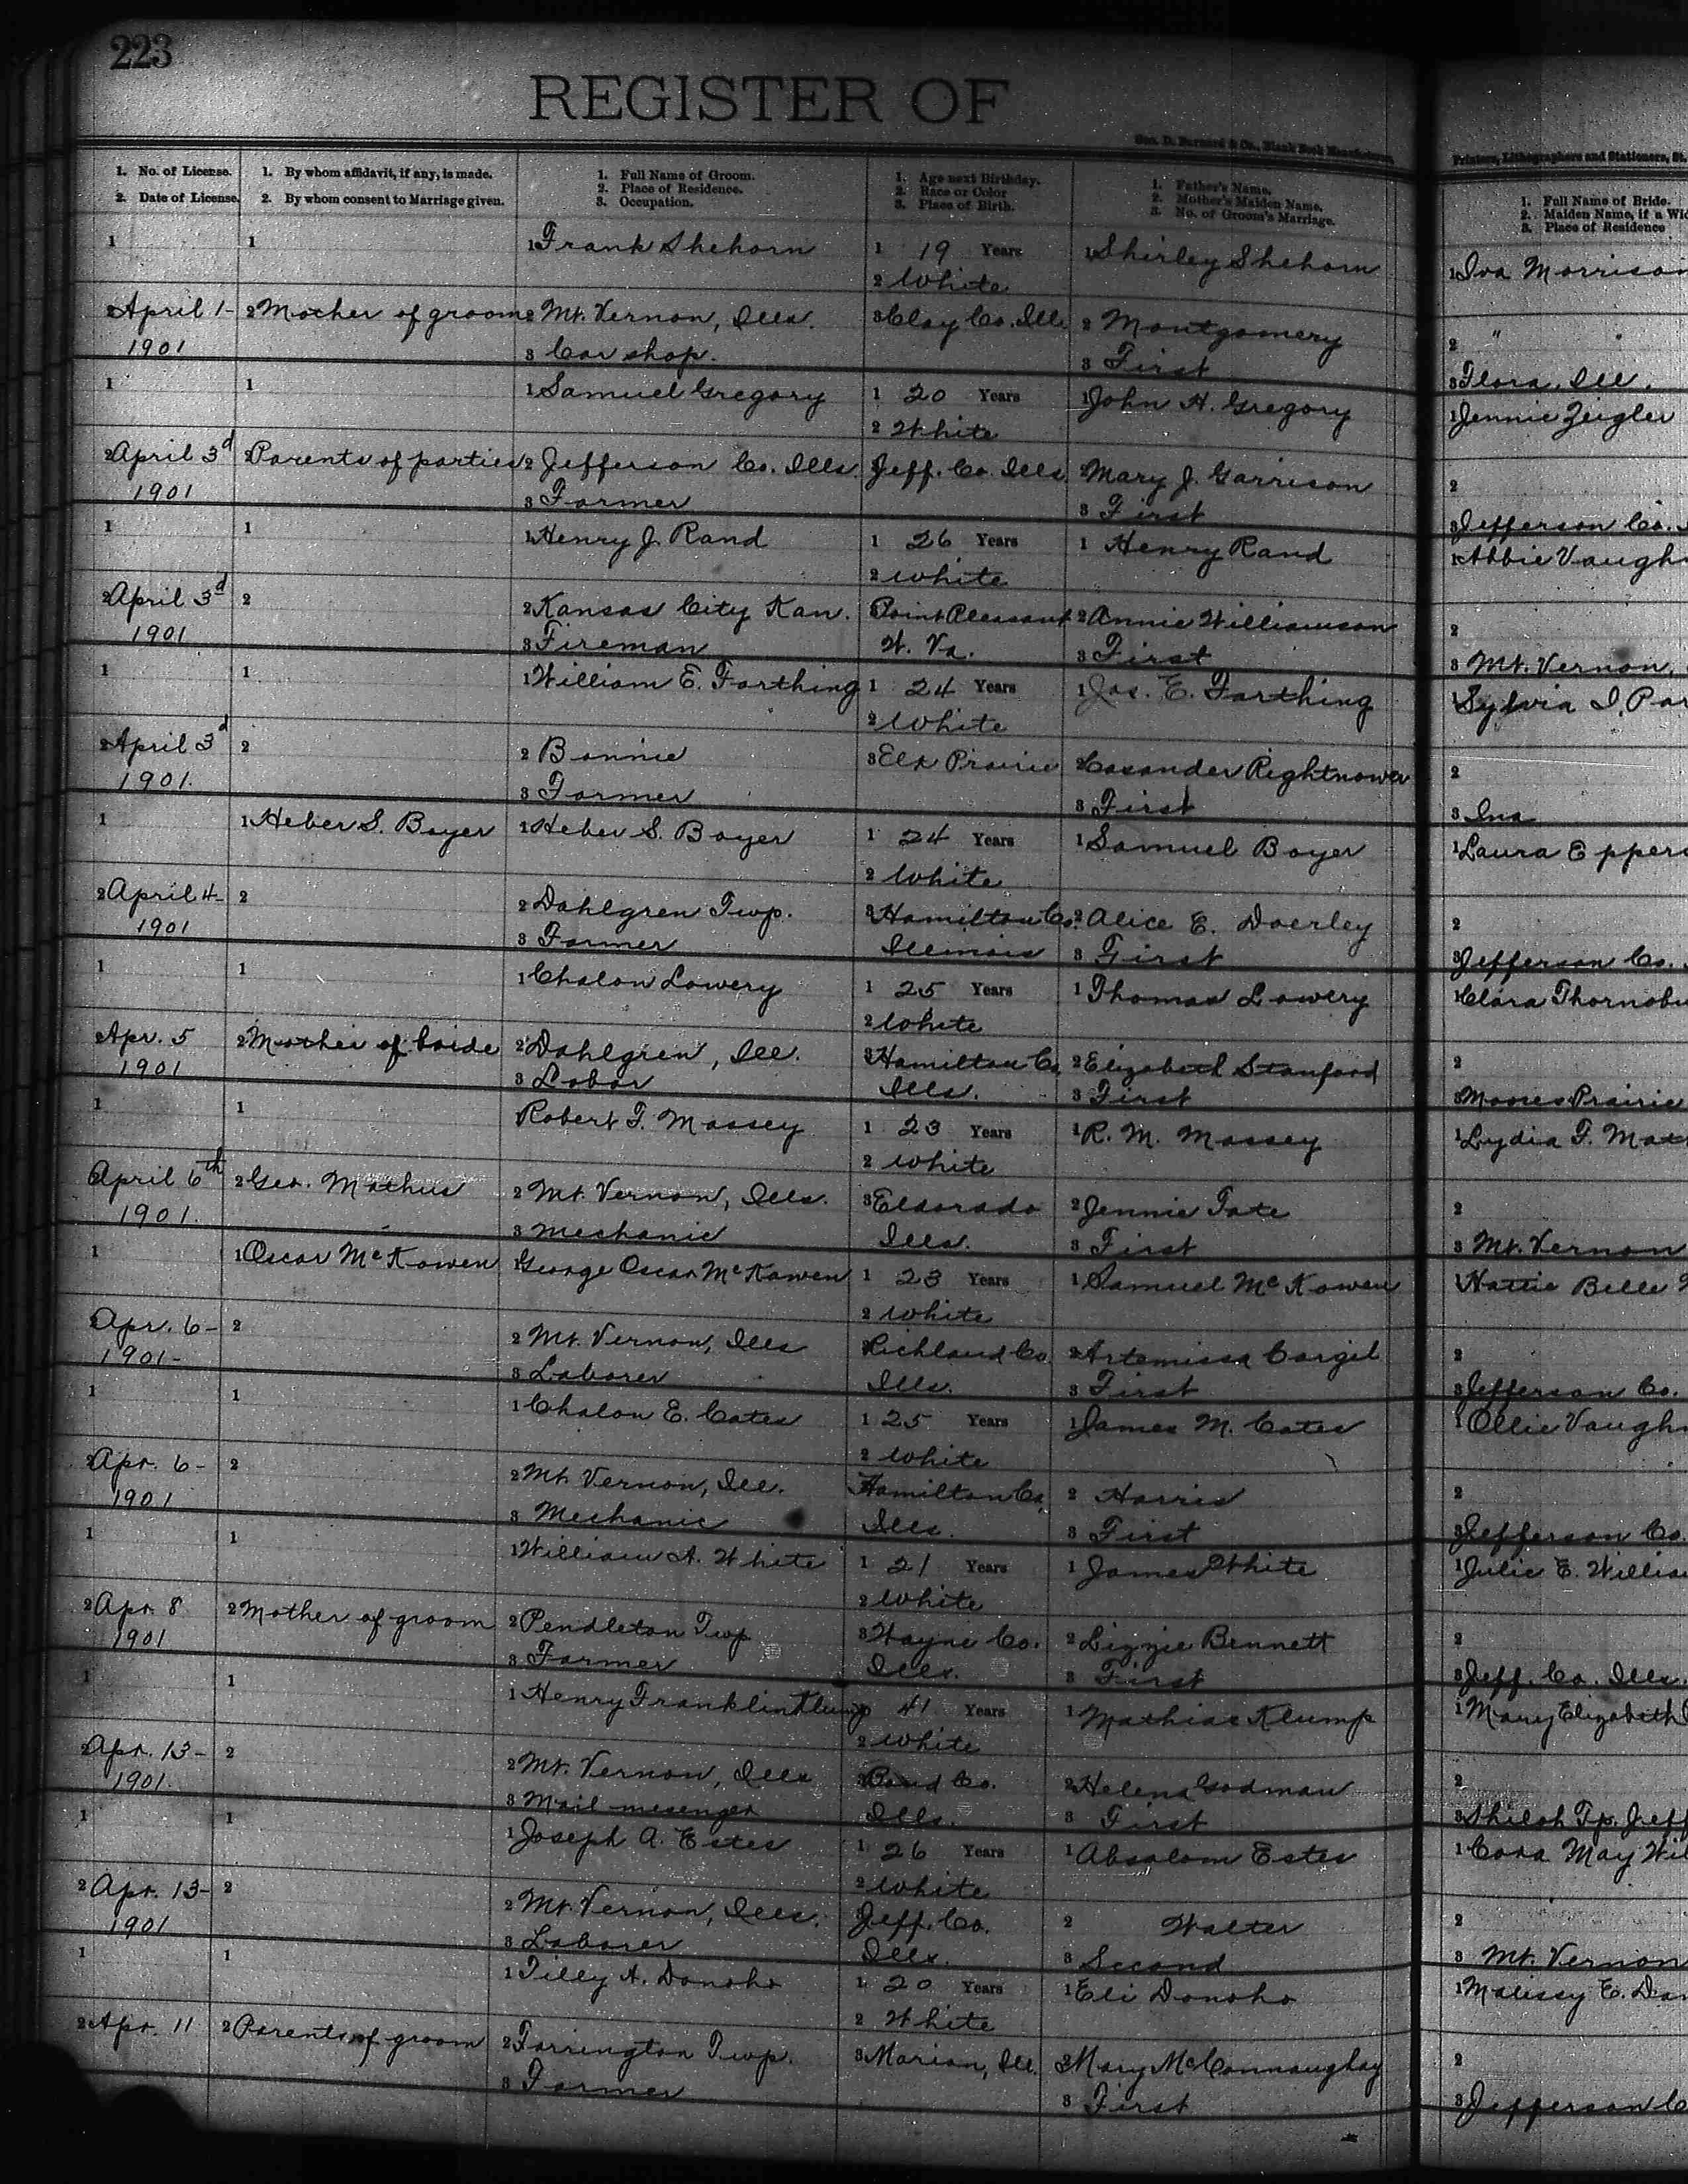 223
REGISTER OF
Geo. D. Barnard & Co., Blank Book Manufacturers,
Printers, Lithographers and Stationers, St.
1. No. of License.
2. Date of License.
1. By whom affidavit, if any, is made.
2. By whom consent to Marriage given.
1. Full Name of Groom.
2. Place of Residence.
3. Occupation.
1. Age next Birthday.
2. Race or Color
3. Place of Birth.
1. Father's Name.
2. Mother's Maiden Name.
3. No. of Groom's Marriage.
1. Full Name of Bride.
2. Maiden Name, if a Wid
3. Place of Residence
1 1 1 Frank Shehorn 1 19 Years 1 Shirley Shehorn 1 Iva Morrison
2 White
2 April 1- 2 Mother of groom 2 Mt. Vernon, Ills. 3 Clay Co. Ills 2 Montgomery 2 "
1901 3 Car shop. 3 First 3 Flora, Ill.
1 1 1 Samuel Gregory 1 20 Years 1 John H. Gregory 1 Jennie Zeigler
2 White
2 April 3d 2 Parents of parties 2 Jefferson Co. Ills. Jeff. Co. Ills 2 Mary J. Garrison 2
1901 3 Farmer 3 First 3 Jefferson Co.
1 1 1 Henry J. Rand 1 26 Years 1 Henry Rand 1 Abbie Vaugh
2 White
2 April 3d 2 2 Kansas City Kan. 3 Point Pleasant 2 Annie Williamson 2
1901 3 Fireman W. Va. 3 First 3 Mt. Vernon,
1 1 1 William E. Farthing 1 24 Years 1 Jas. E. Farthing 1 Sylvia I. Par
2 White
2 April 3d 2 2 Bonnie 3 Elk Prairie 2 Casander Rightnowar 2
1901. 3 Farmer 3 First 3 Ina
1 1 Heber S. Boyer 1 Heber S. Boyer 1 24 Years 1 Samuel Boyer 1 Laura Eppers
2 White
2 April 4- 2 2 Dahlgren Twp. 3 Hamilton Co. 2 Alice E. Daerley 2
1901 3 Farmer Illinois 3 First 3 Jefferson Co.
1 1 1 Chalon Lowery 1 25 Years 1 Thomas Lowery 1 Clara Thornsbu
2 White
2 Apr. 5 2 Mother of bride 2 Dahlgren, Ill. 3 Hamilton Co. 2 Elizabeth Stanford 2
1901 3 Labor Ills. 3 First 3 Moores Prairie
1 1 Robert T. Massey 1 23 Years 1 R. M. Massey 1 Lydia F. Mat
2 White
April 6th 2 Geo. Mathus 2 Mt. Vernon, Ills. 3 Eldorado 2 Jennie Tate 2
1901. 3 Mechanic Ills. 3 First 3 Mt. Vernon
1 1 Oscar McKowen 1 George Oscar McKowen 1 23 Years 1 Samuel McKowen Hattie Belle
2 White
2 Apr. 6- 2 2 Mt. Vernon, Ills 3 Richland Co. 2 Artemissa Cargil 2
1901- 3 Laborer Ills. 3 First 3 Jefferson Co.
1 1 1 Chalon E. Cates 1 25 Years 1 James M. Cates 1 Ollie Vaugh
2 White
2 Apr. 6- 2 2 Mt. Vernon, Ill. Hamilton Co. 2 Harris 2
1901 3 Mechanic Ills. 3 First 3 Jefferson Co.
1 1 1 William A. White 1 21 Years 1 James White 1 Julie E. Willia
2 White
2 Apr. 8 2 Mother of groom 2 Pendleton Twp 3 Wayne Co. 2 Lizzie Bennett 2
1901 3 Farmer Ills. 3 First 3 Jeff. Co. Ills.
1 1 1 Henry Franklin Klump 41 Years 1 Mathias Klump 1 Mary Elizabeth
2 White
2 Apr. 13- 2 2 Mt. Vernon, Ills 3 Bond Co. 2 Helena Godman 2
1901. 3 Mail mesenger Ills. 3 First 3 Shiloh Tp. Jeff
1 1 1 Joseph A. Estes 1 26 Years 1 Absalom Estes 1 Cora May Wil
2 White
2 Apr. 13- 2 2 Mt. Vernon, Ills. Jeff. Co. 2 Walter 2
1901 3 Laborer Ills. 3 Second 3 Mt. Vernon
1 1 1 Tilly A. Donoho 1 20 Years 1 Eli Donoho 1 Malissy E. Da
2 White
2 Apr. 11 2 Parents of groom 2 Farrington Twp. 3 Marion, Ill. 2 Mary McConnaughay 2
3 Farmer 3 First 3 Jefferson C